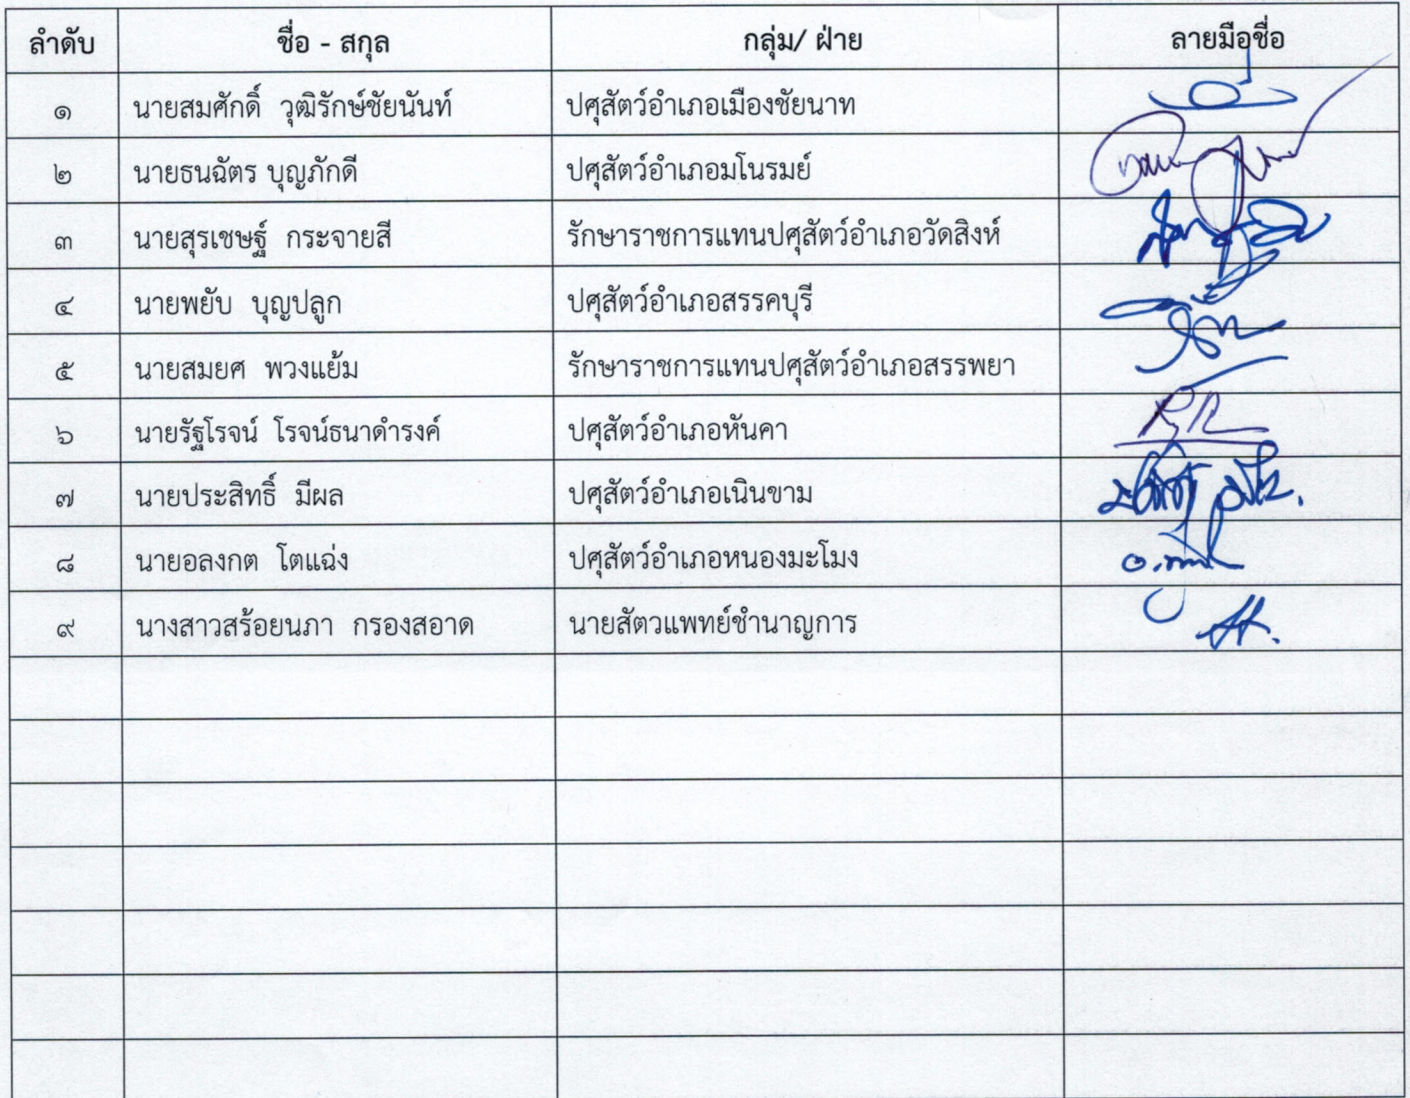 ลำดับ ชื่อ - สกุล กลุ่ม/ ฝ่าย ลายมือชื่อ
๑ นายสมศักดิ์ วุฒิรักษ์ชัยนันท์ ปศุสัตว์อำเภอเมืองชัยนาท
๒ นายธนฉัตร บุญภักดี ปศุสัตว์อำเภอมโนรมย์
๓ นายสุรเชษฐ์ กระจายสี รักษาราชการแทนปศุสัตว์อำเภอวัดสิงห์
๔ นายพยับ บุญปลูก ปศุสัตว์อำเภอสรรคบุรี
๕ นายสมยศ พวงแย้ม รักษาราชการแทนปศุสัตว์อำเภอสรรพยา
๖ นายรัฐโรจน์ โรจน์ธนาดำรงค์ ปศุสัตว์อำเภอหันคา
๗ นายประสิทธิ์ มีผล ปศุสัตว์อำเภอเนินขาม
๘ นายอลงกต โตแฉ่ง ปศุสัตว์อำเภอหนองมะโมง
๙ นางสาวสร้อยนภา กรองสอาด นายสัตวแพทย์ชำนาญการ